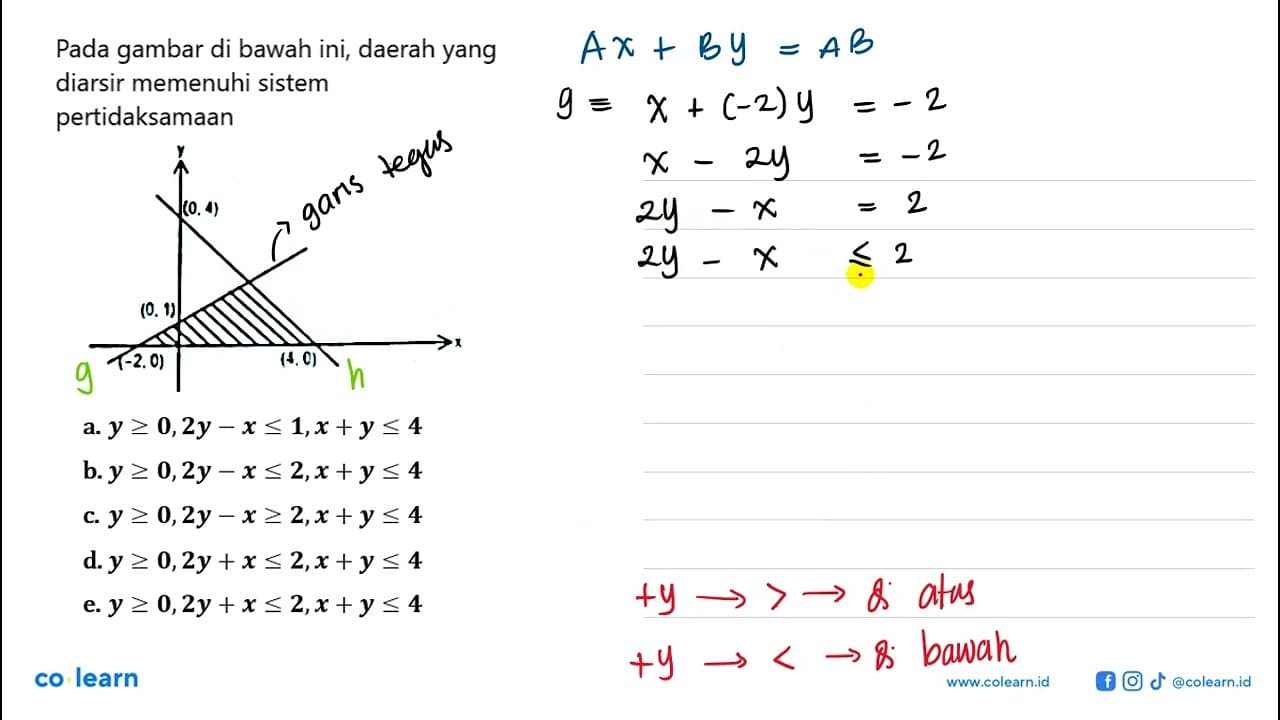 Pada gambar di bawah ini, daerah yang
diarsir memenuhi sistem
pertidaksamaan
y
(0, 4)
garis tegus
(0, 1)
x
(-2, 0)
(4, 0)
g
h
a. y ≥ 0, 2y − x ≤ 1, x + y ≤ 4
b. y ≥ 0, 2y − x ≤ 2, x + y ≤ 4
c. y ≥ 0, 2y − x ≥ 2, x + y ≤ 4
d. y ≥ 0, 2y + x ≤ 2, x + y ≤ 4
e. y ≥ 0, 2y + x ≤ 2, x + y ≤ 4
co learn
Ax + By = AB
g ≡ x + (-2)y = -2
x - 2y = -2
2y - x = 2
2y - x ≤ 2
+y → > → di atas
+y → < → di bawah
www.colearn.id
@colearn.id